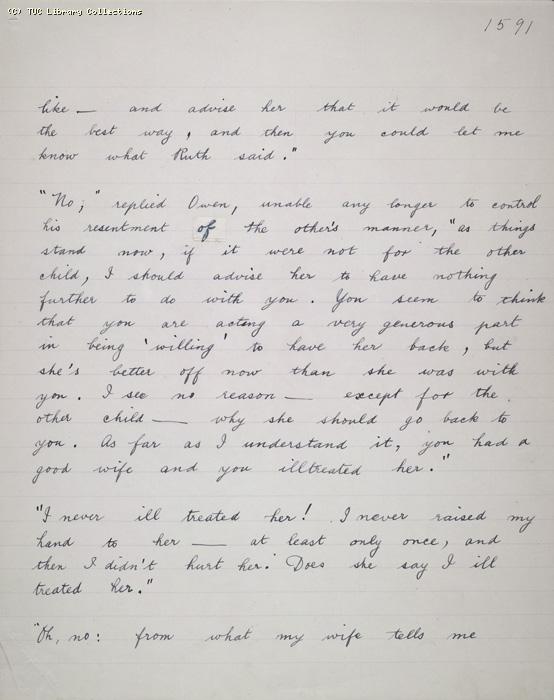 (C) TUC Library Collections
1591
like — and advise her that it would be
the best way, and then you could let me
know what Ruth said."
"No;" replied Owen, unable any longer to control
his resentment of the other's manner, "as things
stand now, if it were not for the other
child, I should advise her to have nothing
further to do with you. You seem to think
that you are acting a very generous part
in being 'willing' to have her back, but
she's better off now than she was with
you. I see no reason — except for the
other child — why she should go back to
you. As far as I understand it, you had a
good wife and you illtreated her."
"I never ill treated her! I never raised my
hand to her — at least only once, and
then I didn't hurt her. Does she say I ill
treated her."
"Oh, no: from what my wife tells me